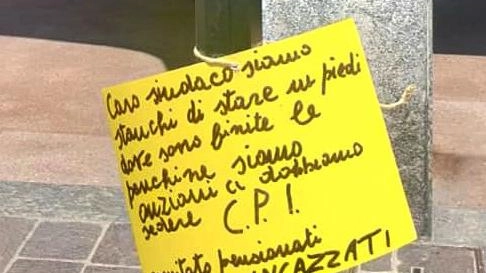 Caro sindaco siamo
stanchi di stare in piedi
dove sono finite le
panchine siamo
anziani ci dobbiamo
sedere C.P.I.
pensionati
INCAZZATI